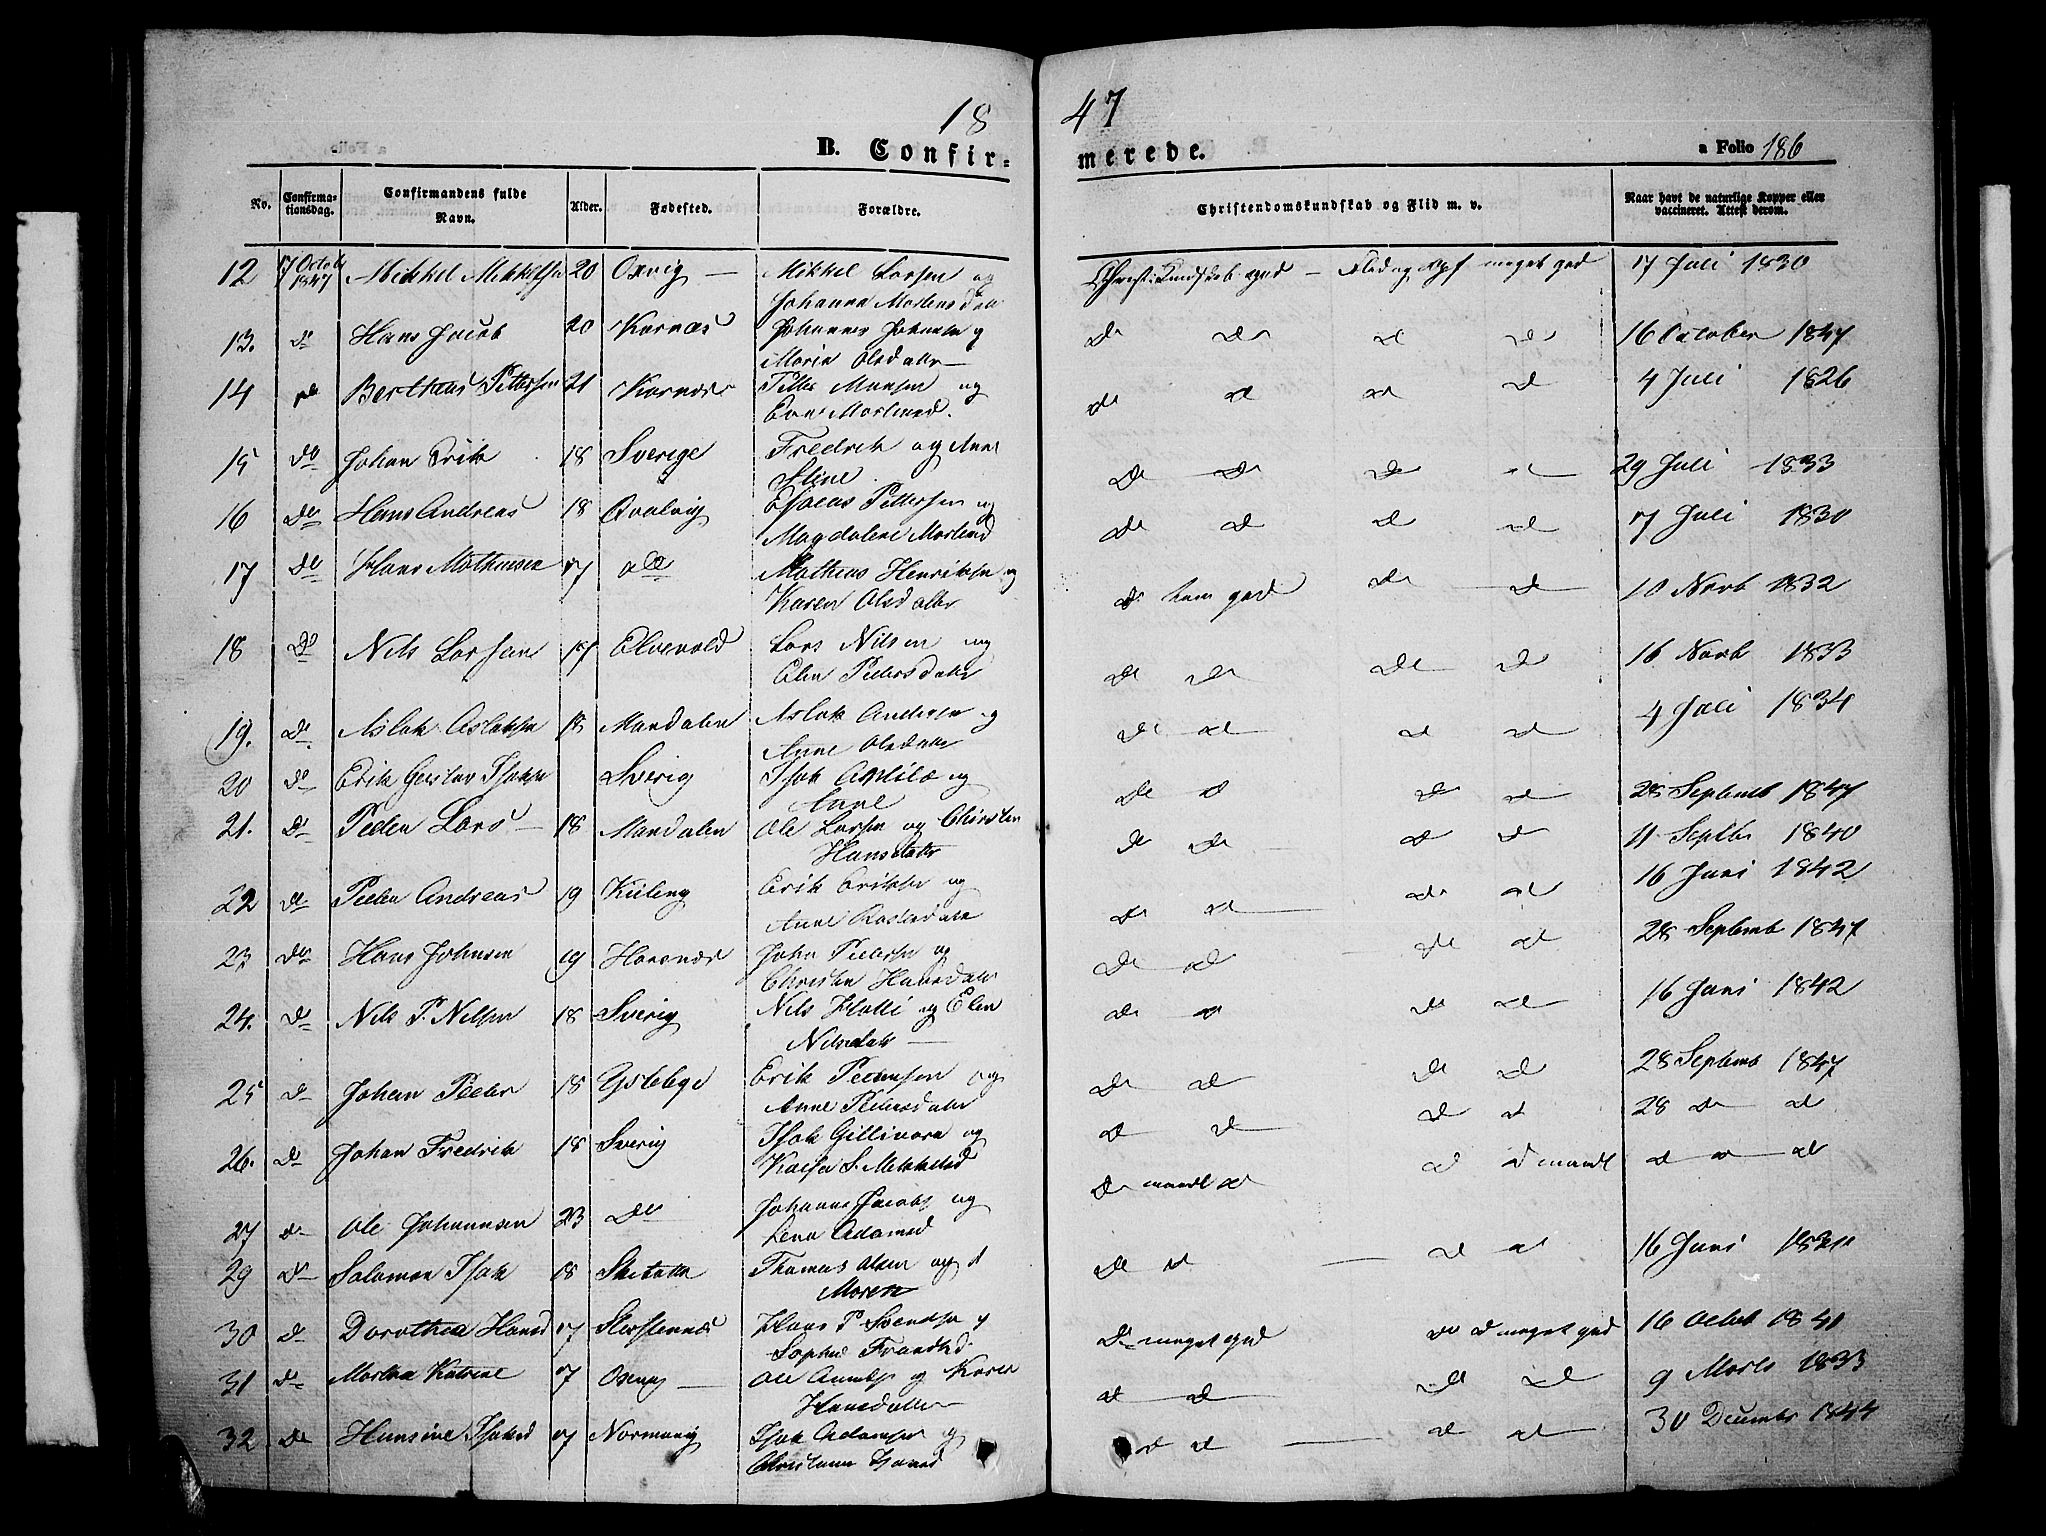 18 47
B. Confir- merede. a Folio 186
No. Confirma- tionsdag. Confirmandens fulde Navn. Alder. Fødested. Forældre. Christendomskundskab og Flid m. v. Naar havt de naturlige Kopper eller vaccineret. Attest derom.
12 17 Octob 1847 Mikkel Mikkelsen 20 Oxvig — Mikkel Larsen og Christ: Kundskab god — Flid og Opf meget god 17 Juli 1830
Johanna Mortensdatr
13. do Hans Jacob 20 Kornæs Johannes Johnsen og do do do do 16 October 1847
Maria Olsdatter
14 do Bertheus Pettersen 21 Kornæs Petter Monsen og do do do do 4 Juli 1826
15 do Johan Erik 18 Sverige Fredrik og Anne do do do do 29 Juli 1833
Stine
16 do Hans Andreas 18 Qvalvig Esaias Pettersen og do do do do 7 Juli 1830
Magdalene Mortensd
17 do Hans Mathisen 17 do Mathias Henriksen og do kun god do do 10 Novb 1832
Karen Olsdatter
18 do Nils Larsen 17 Elvevold Lars Nilsen og do do do do 16 Novb 1833
Elen Pedersdatter
19. do Aslak Aslaksen 18 Mandalen Aslak Andersen og do do do do 4 Juli 1834
Anne Olsdatter
20 do Erik Gustav Isaksen Sverig Isak og do do do do 28 Septemb 1847
Anne
21. do Peder Lars — 18 Mandalen Ole Larsen og Christen do do do do 11 Septbr 1840
Hansdatter
22 do Peder Andreas 19 Kileng Erik Eriksen og do do do do 16 Juni 1842
Anne
23 do Hans Johnsen 19 Havnnæs John Pedersen og do do do do 28 Septemb 1847
Christen Hansdatter
24. do Nils P. Nilsen 18 Sverig Nils Hotti og Elen do do do do 16 Juni 1842
Nilsdatr —
25 do Johan Peder 18 Erik Pedersen og do do do do 28 Septemb 1847
Anne Pedersdatter
26. do Johan Fredrik 18 Sverig Isak Gillivara og do do do do 28 do do
Kaisa S. Mikkelsd
27 do Ole Johannsen 23 do Johannes Jacobs og do maadl do do do maadl do do do
Lena Adamsd
29 do Salomon Isak 18 Skibotn Thomas Olsen og do do do do 16 Juni
Maren
30 do Dorothea Hansd 17 Hans P. Svendsen og do meget god do do meget god 16 Octob 1841
Sophie Frandsd
31 do Martha Katrine 17 — Ole og Karen do do do do 9 Marts 1833
Hansdatter
32 do Hansine Isaksd 17 Normanvig Isak Adamsen og do do do do 30 Decembr 1844
Hansd